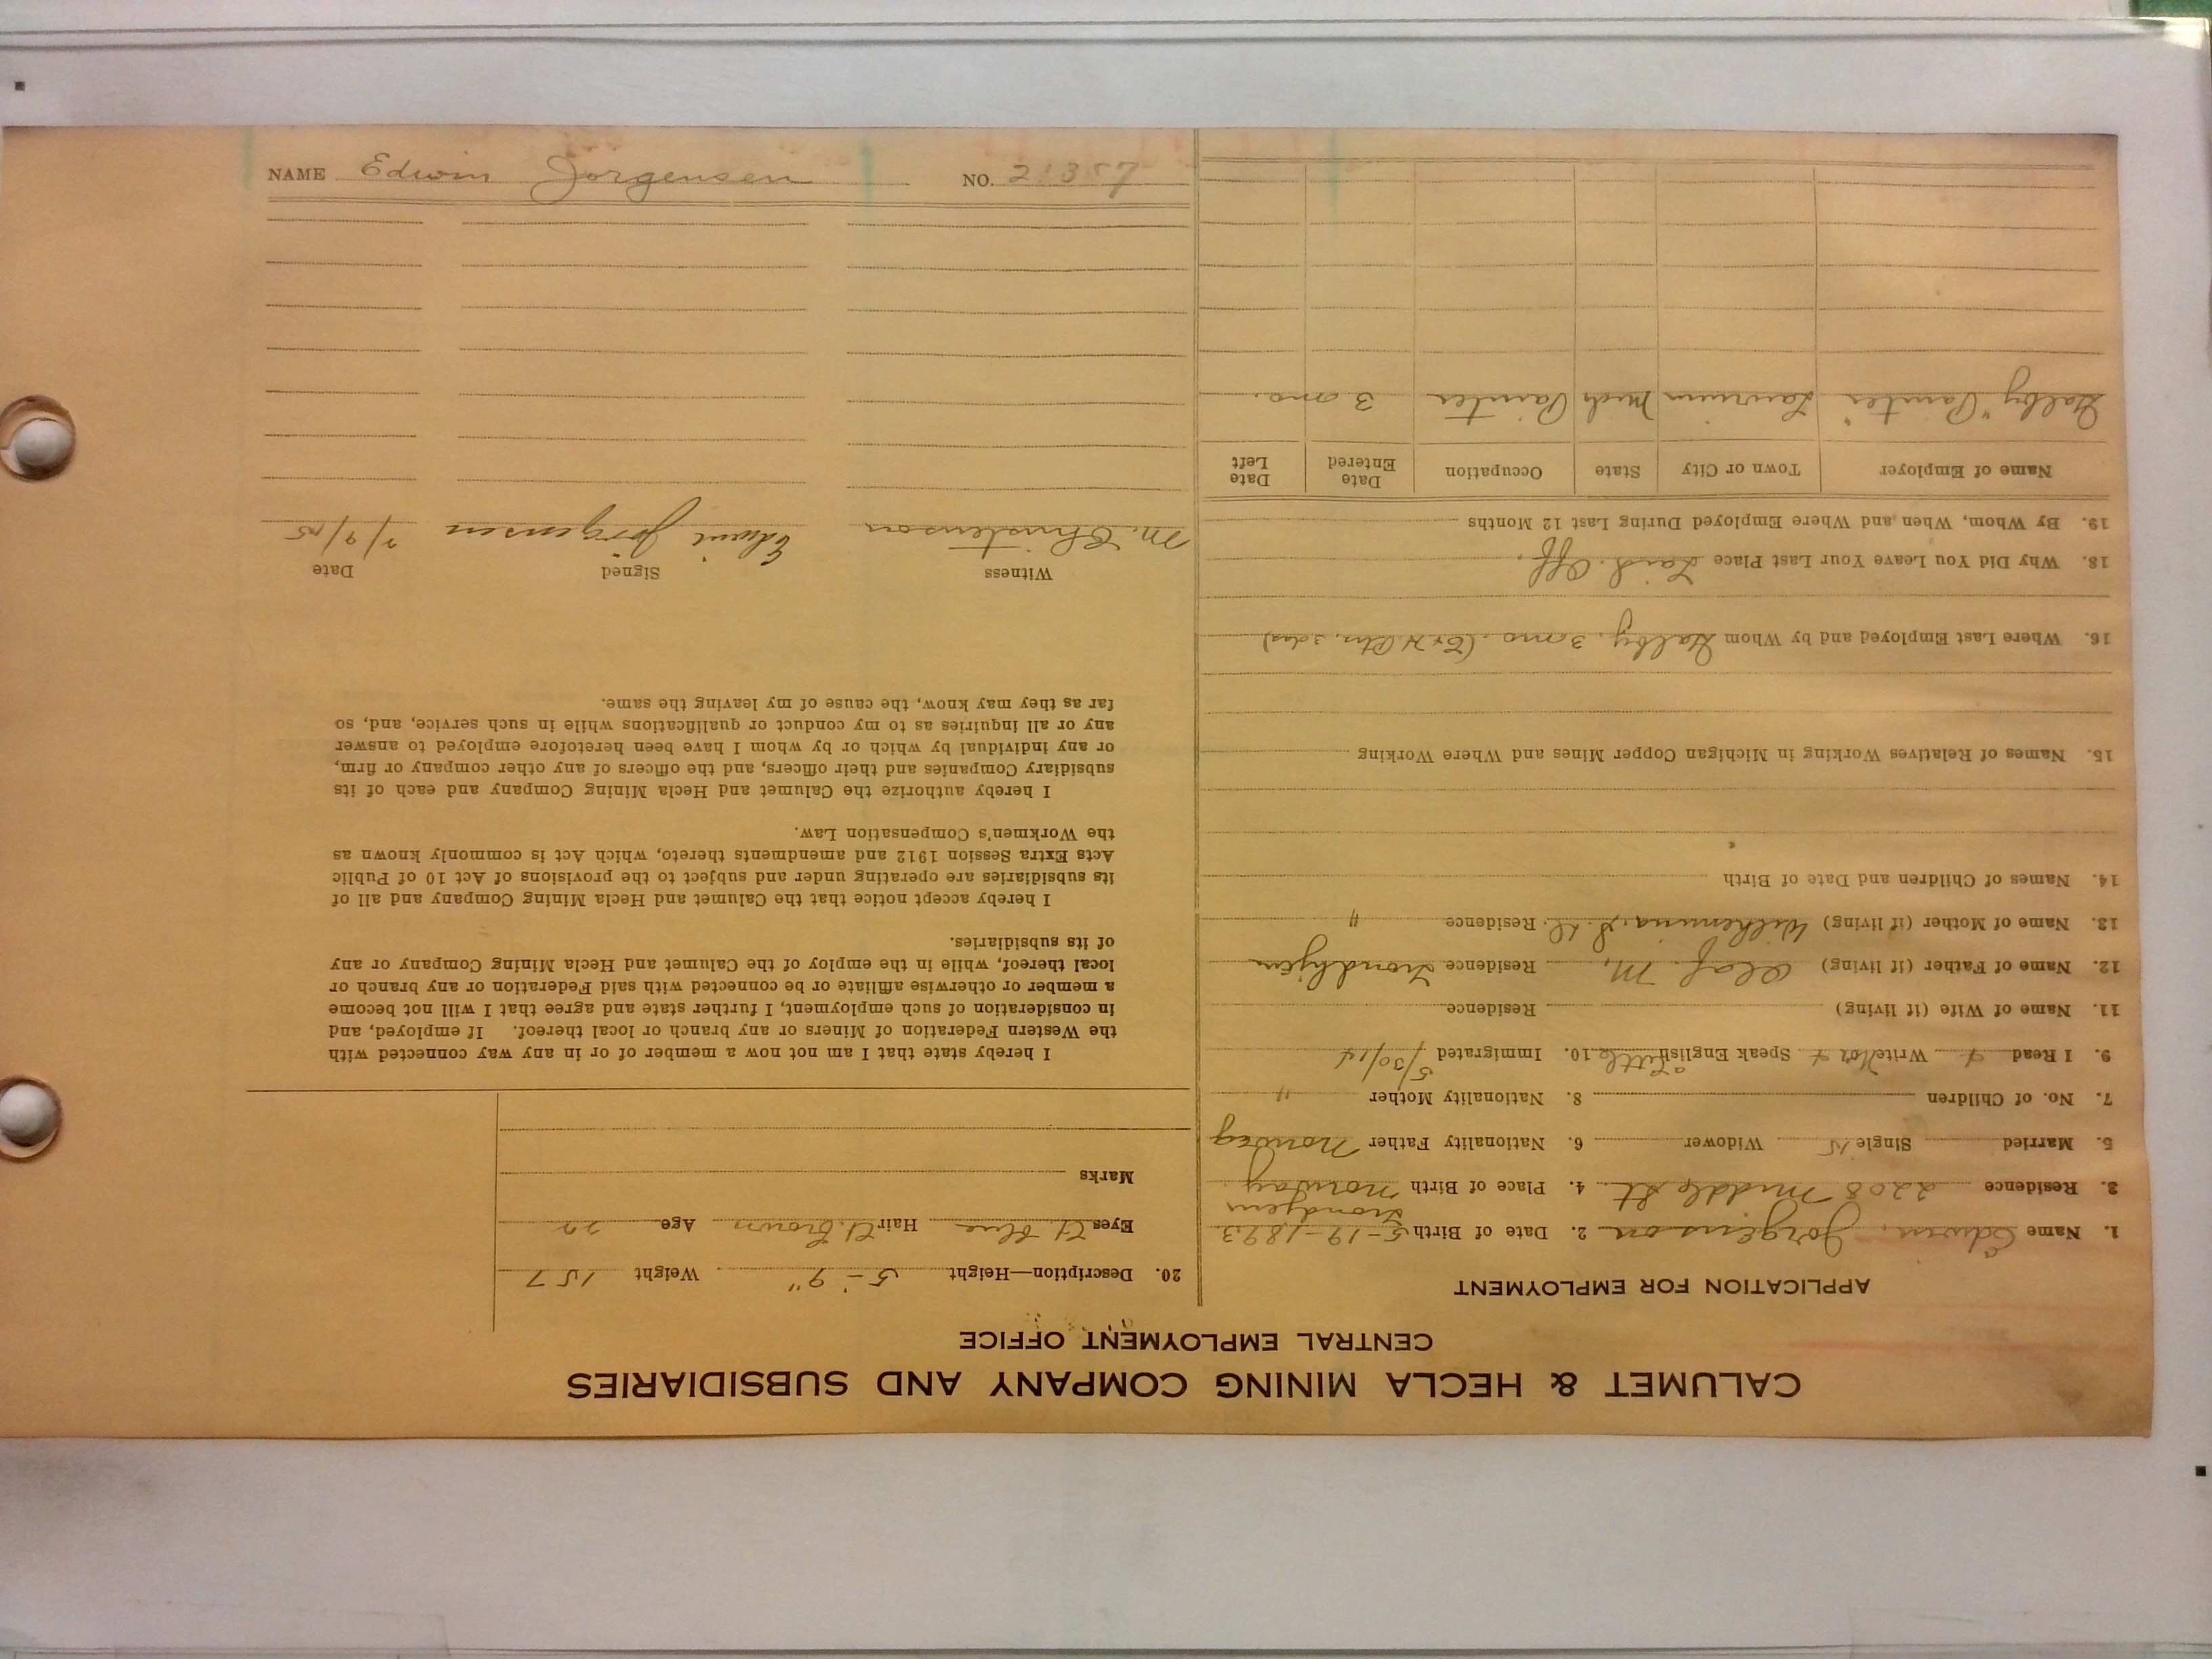 CALUMET & HECLA MINING COMPANY AND SUBSIDIARIES
CENTRAL EMPLOYMENT OFFICE
APPLICATION FOR EMPLOYMENT
1. Name Edwin Jorgenson 2. Date of Birth 5-19-1893
Trondjem
3. Residence 2208 Middle St. 4. Place of Birth Norway
5. Married Single Widower 6. Nationality Father Norweg
7. No. of Children 8. Nationality Mother "
9. I Read Write Nor Speak English a Little 10. Immigrated 5/30/14
11. Name of Wife (if living) Residence
12. Name of Father (if living) Olaf. M. Residence Trondhjem
13. Name of Mother (if living) Residence "
14. Names of Children and Date of Birth
15. Names of Relatives Working in Michigan Copper Mines and Where Working
16. Where Last Employed and by Whom 3 mo.
18. Why Did You Leave Your Last Place Laid Off.
19. By Whom, When and Where Employed During Last 12 Months
Name of Employer Town or City State Occupation Date Entered Date Left
"Painter" Laurium Mich Painter 3 mo.
20. Description—Height 5-9" Weight 157
Eyes Lt blue Hair Lt. brown Age 22
Marks
I hereby state that I am not now a member of or in any way connected with
the Western Federation of Miners or any branch or local thereof. If employed, and
in consideration of such employment, I further state and agree that I will not become
a member or otherwise affiliate or be connected with said Federation or any branch or
local thereof, while in the employ of the Calumet and Hecla Mining Company or any
of its subsidiaries.
I hereby accept notice that the Calumet and Hecla Mining Company and all of
its subsidiaries are operating under and subject to the provisions of Act 10 of Public
Acts Extra Session 1912 and amendments thereto, which Act is commonly known as
the Workmen's Compensation Law.
I hereby authorize the Calumet and Hecla Mining Company and each of its
subsidiary Companies and their officers, and the officers of any other company or firm,
or any individual by which or by whom I have been heretofore employed to answer
any or all inquiries as to my conduct or qualifications while in such service, and, so
far as they may know, the cause of my leaving the same.
Witness Signed Date
M. Christenson Edwin Jörgensen 7/9/15
NAME Edwin Jorgensen NO. 21357